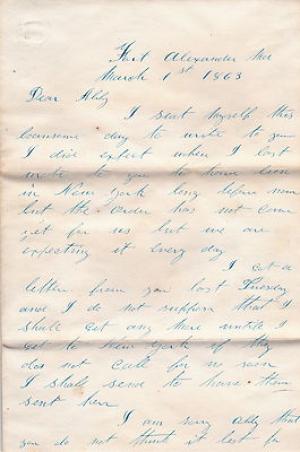 Fort Alexander Md
March 1st 1863
Dear Abby
I seat myself this
lonesome day to write to you
I did expect when I last
wrote to you to have been
in New York long before now
but the order has not come
yet for us but we are
expecting it every day
I got a
letter from you last Tuesday
and I do not suppose that I
shall get any more untill I
get to New York if they
dos not call for us soon
I shall send to have them
sent here
I am sorry Abby that
you do not think it best for